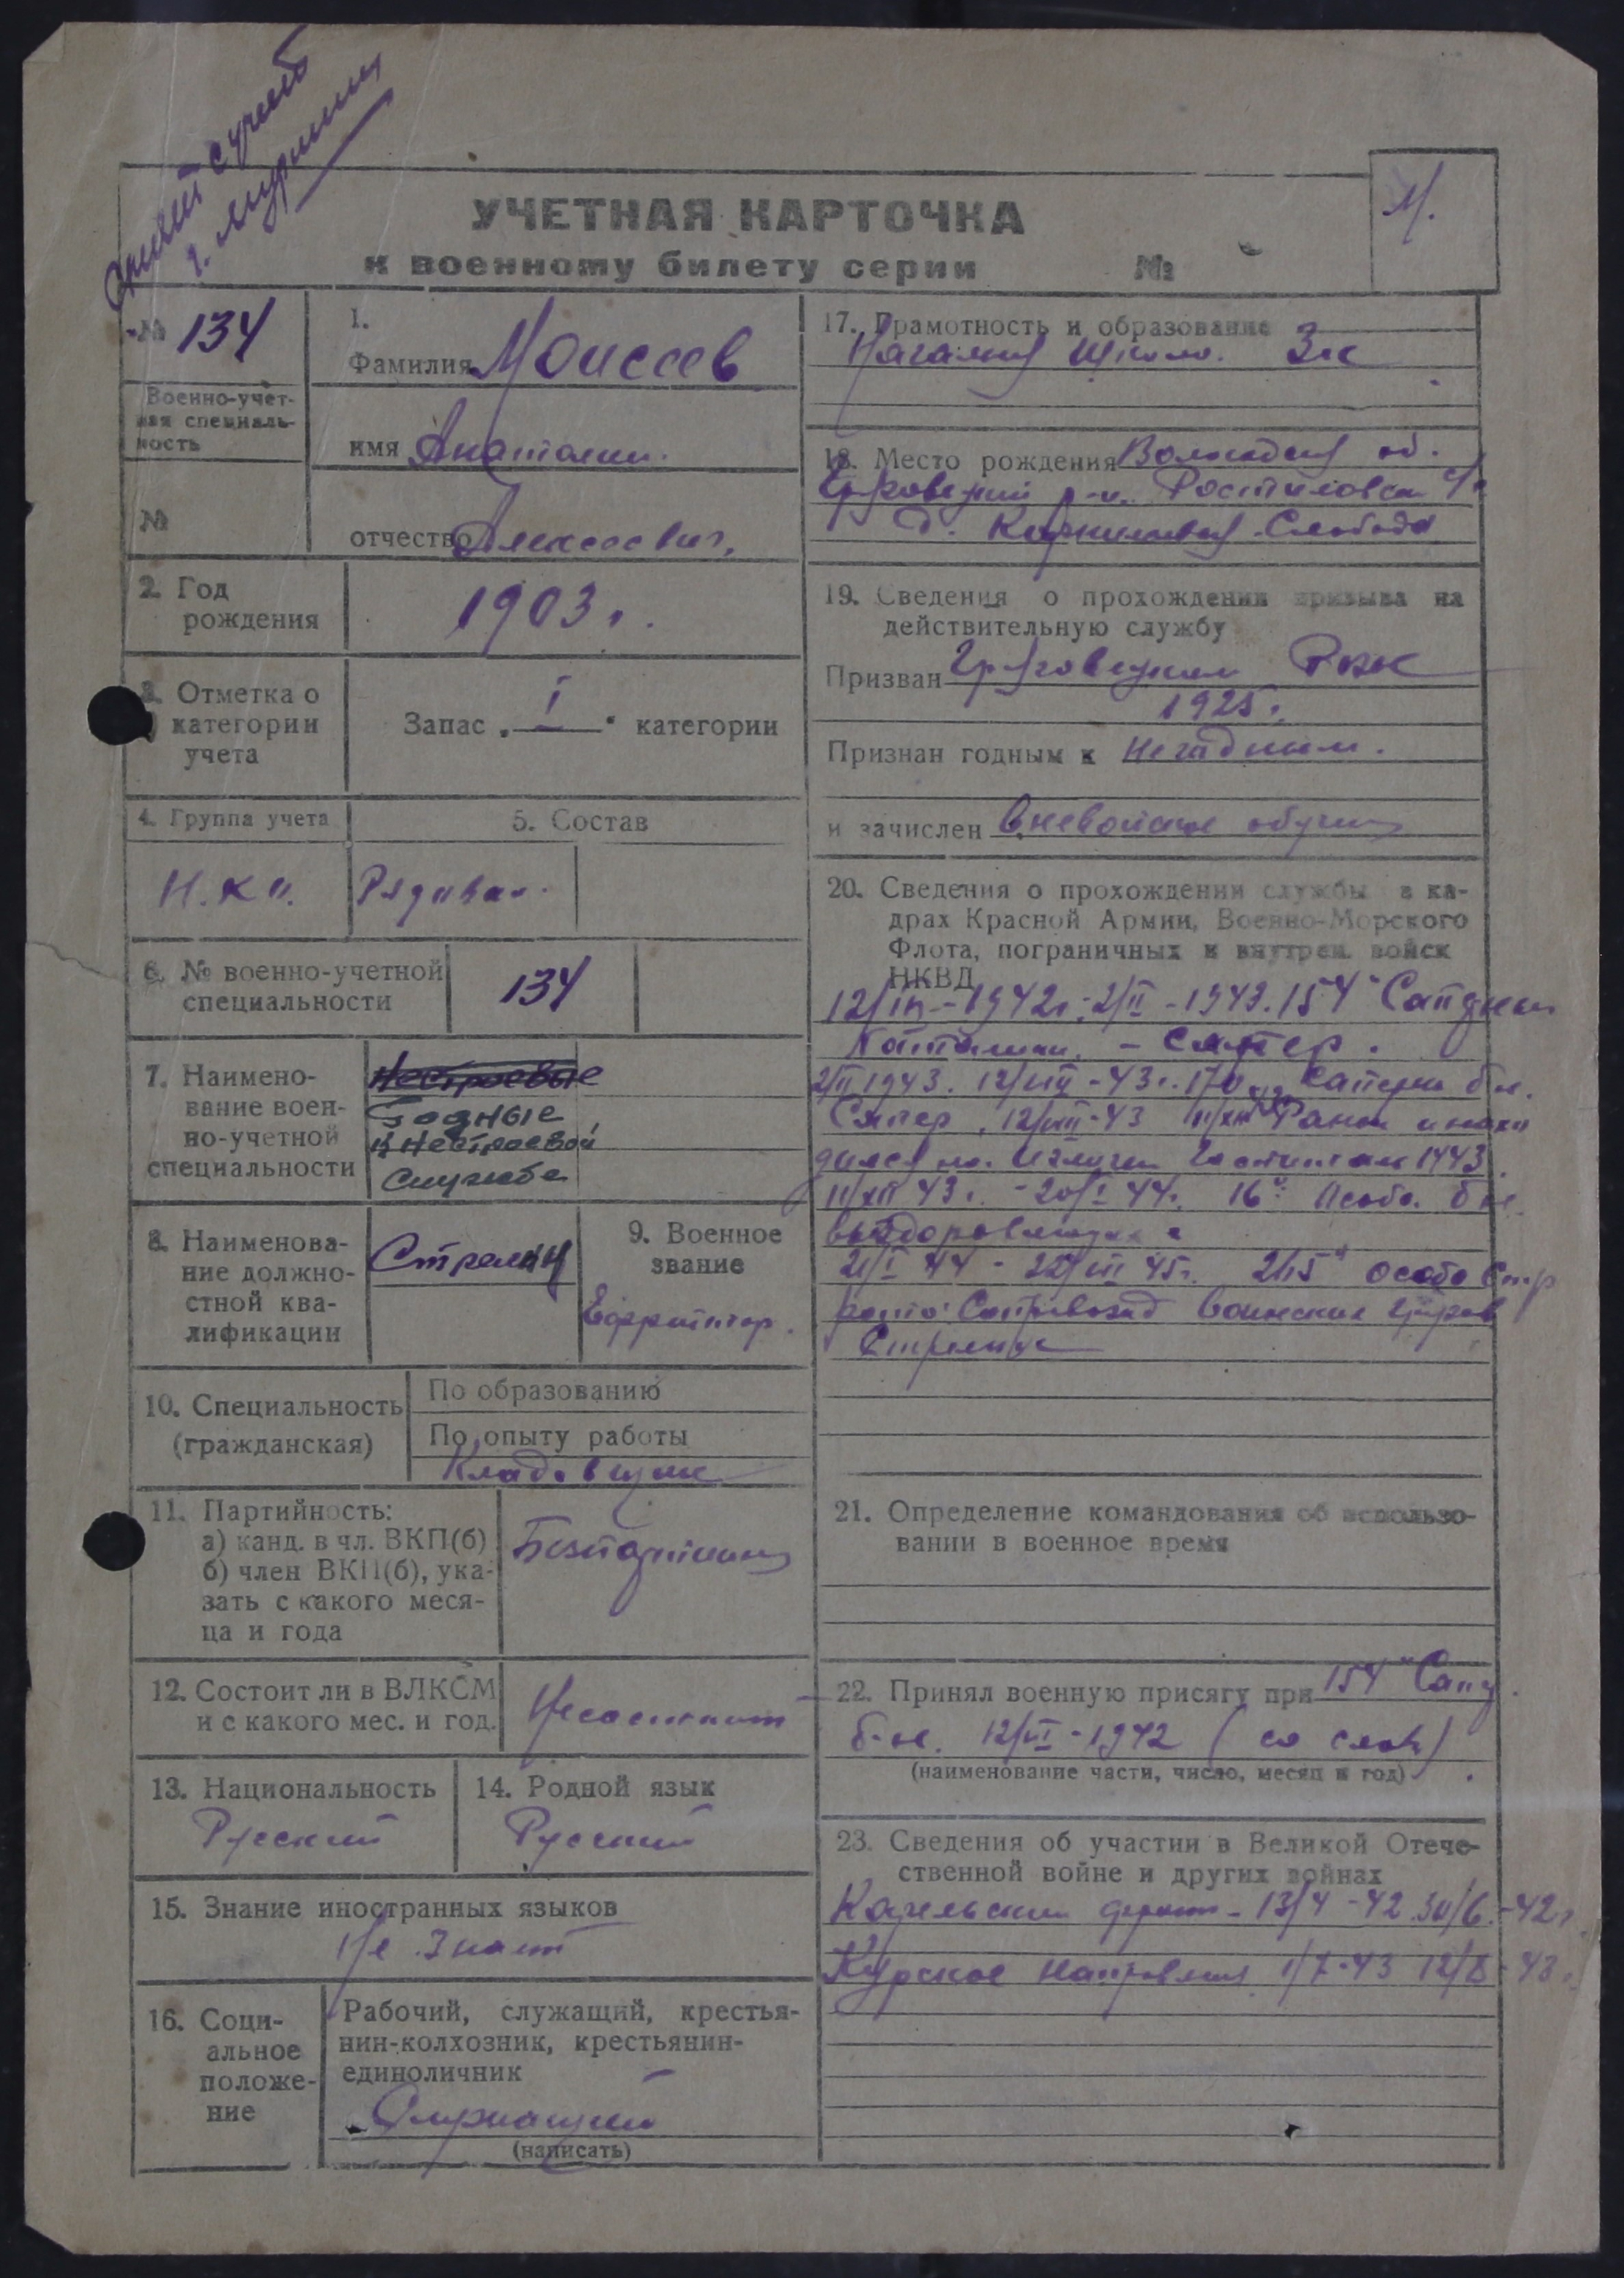 УЧЕТНАЯ КАРТОЧКА
к военному билету серии №
М.
№ 134
Военно-учет-
ная специаль-
ность
№
1.
Фамилия Моисеев
имя Анатолий.
отчество Алексеевич,
2. Год
рождения
1903 г.
3. Отметка о
категории
учета
Запас „ I “ категории
4. Группа учета
5. Состав
Рядовой
6. № военно-учетной
специальности
134
7. Наимено-
вание воен-
но-учетной
специальности
Нестроевые
Годные
к нестроевой
службе
8. Наименова-
ние должно-
стной ква-
лификации
Стрелки
9. Военное
звание
Ефрейтор.
10. Специальность
(гражданская)
По образованию
По опыту работы
Кладовщик
11. Партийность:
а) канд. в чл. ВКП(б)
б) член ВКП(б), ука-
зать с какого меся-
ца и года
Безпартийный
12. Состоит ли в ВЛКСМ
и с какого мес. и год.
Несостоит
13. Национальность
Русский
14. Родной язык
Русский
15. Знание иностранных языков
Не знает
16. Соци-
альное
положе-
ние
Рабочий, служащий, крестья-
нин-колхозник, крестьянин-
единоличник
Служащий
(написать)
17. Грамотность и образование
Начальная школа. 3 к
18. Место рождения Вологодская об.
Грязовецкий р-н. Ростиловск
д. Слобода
19. Сведения о прохождении призыва на
действительную службу
Призван Грязовецким РВК
1925 г.
Признан годным к Негодным.
и зачислен вневойское обучен
20. Сведения о прохождении службы в ка-
драх Красной Армии, Военно-Морского
Флота, пограничных и внутрен. войск
НКВД
1942 г. 2/II - 1943. 154 Саперный
Баталион. - Сапер.
2/II 1943. 12/VIII - 43 г. 170 Саперн б-н.
Сапер, 12/VIII-43 11/XII Ранен и нахо
дился на излечен Госпитале 1443
11/XII 43 г. - 20/I 44 г. 16 Особ. б-н.
выздоравлющих
21/I 44 - 45 г. 215 особо Стр
рота Сопровожд воинских грузов
Стрелок
21. Определение командования об использо-
вании в военное время
22. Принял военную присягу при 154 Сап
б-не. 12/VI - 1942 (со слов)
(наименование части, число, месяц и год)
23. Сведения об участии в Великой Отече-
ственной войне и других войнах
Карельский фронт - 13/4 - 42 30/6 - 42 г.
Курское направлен 43 12/8 - 43 г.